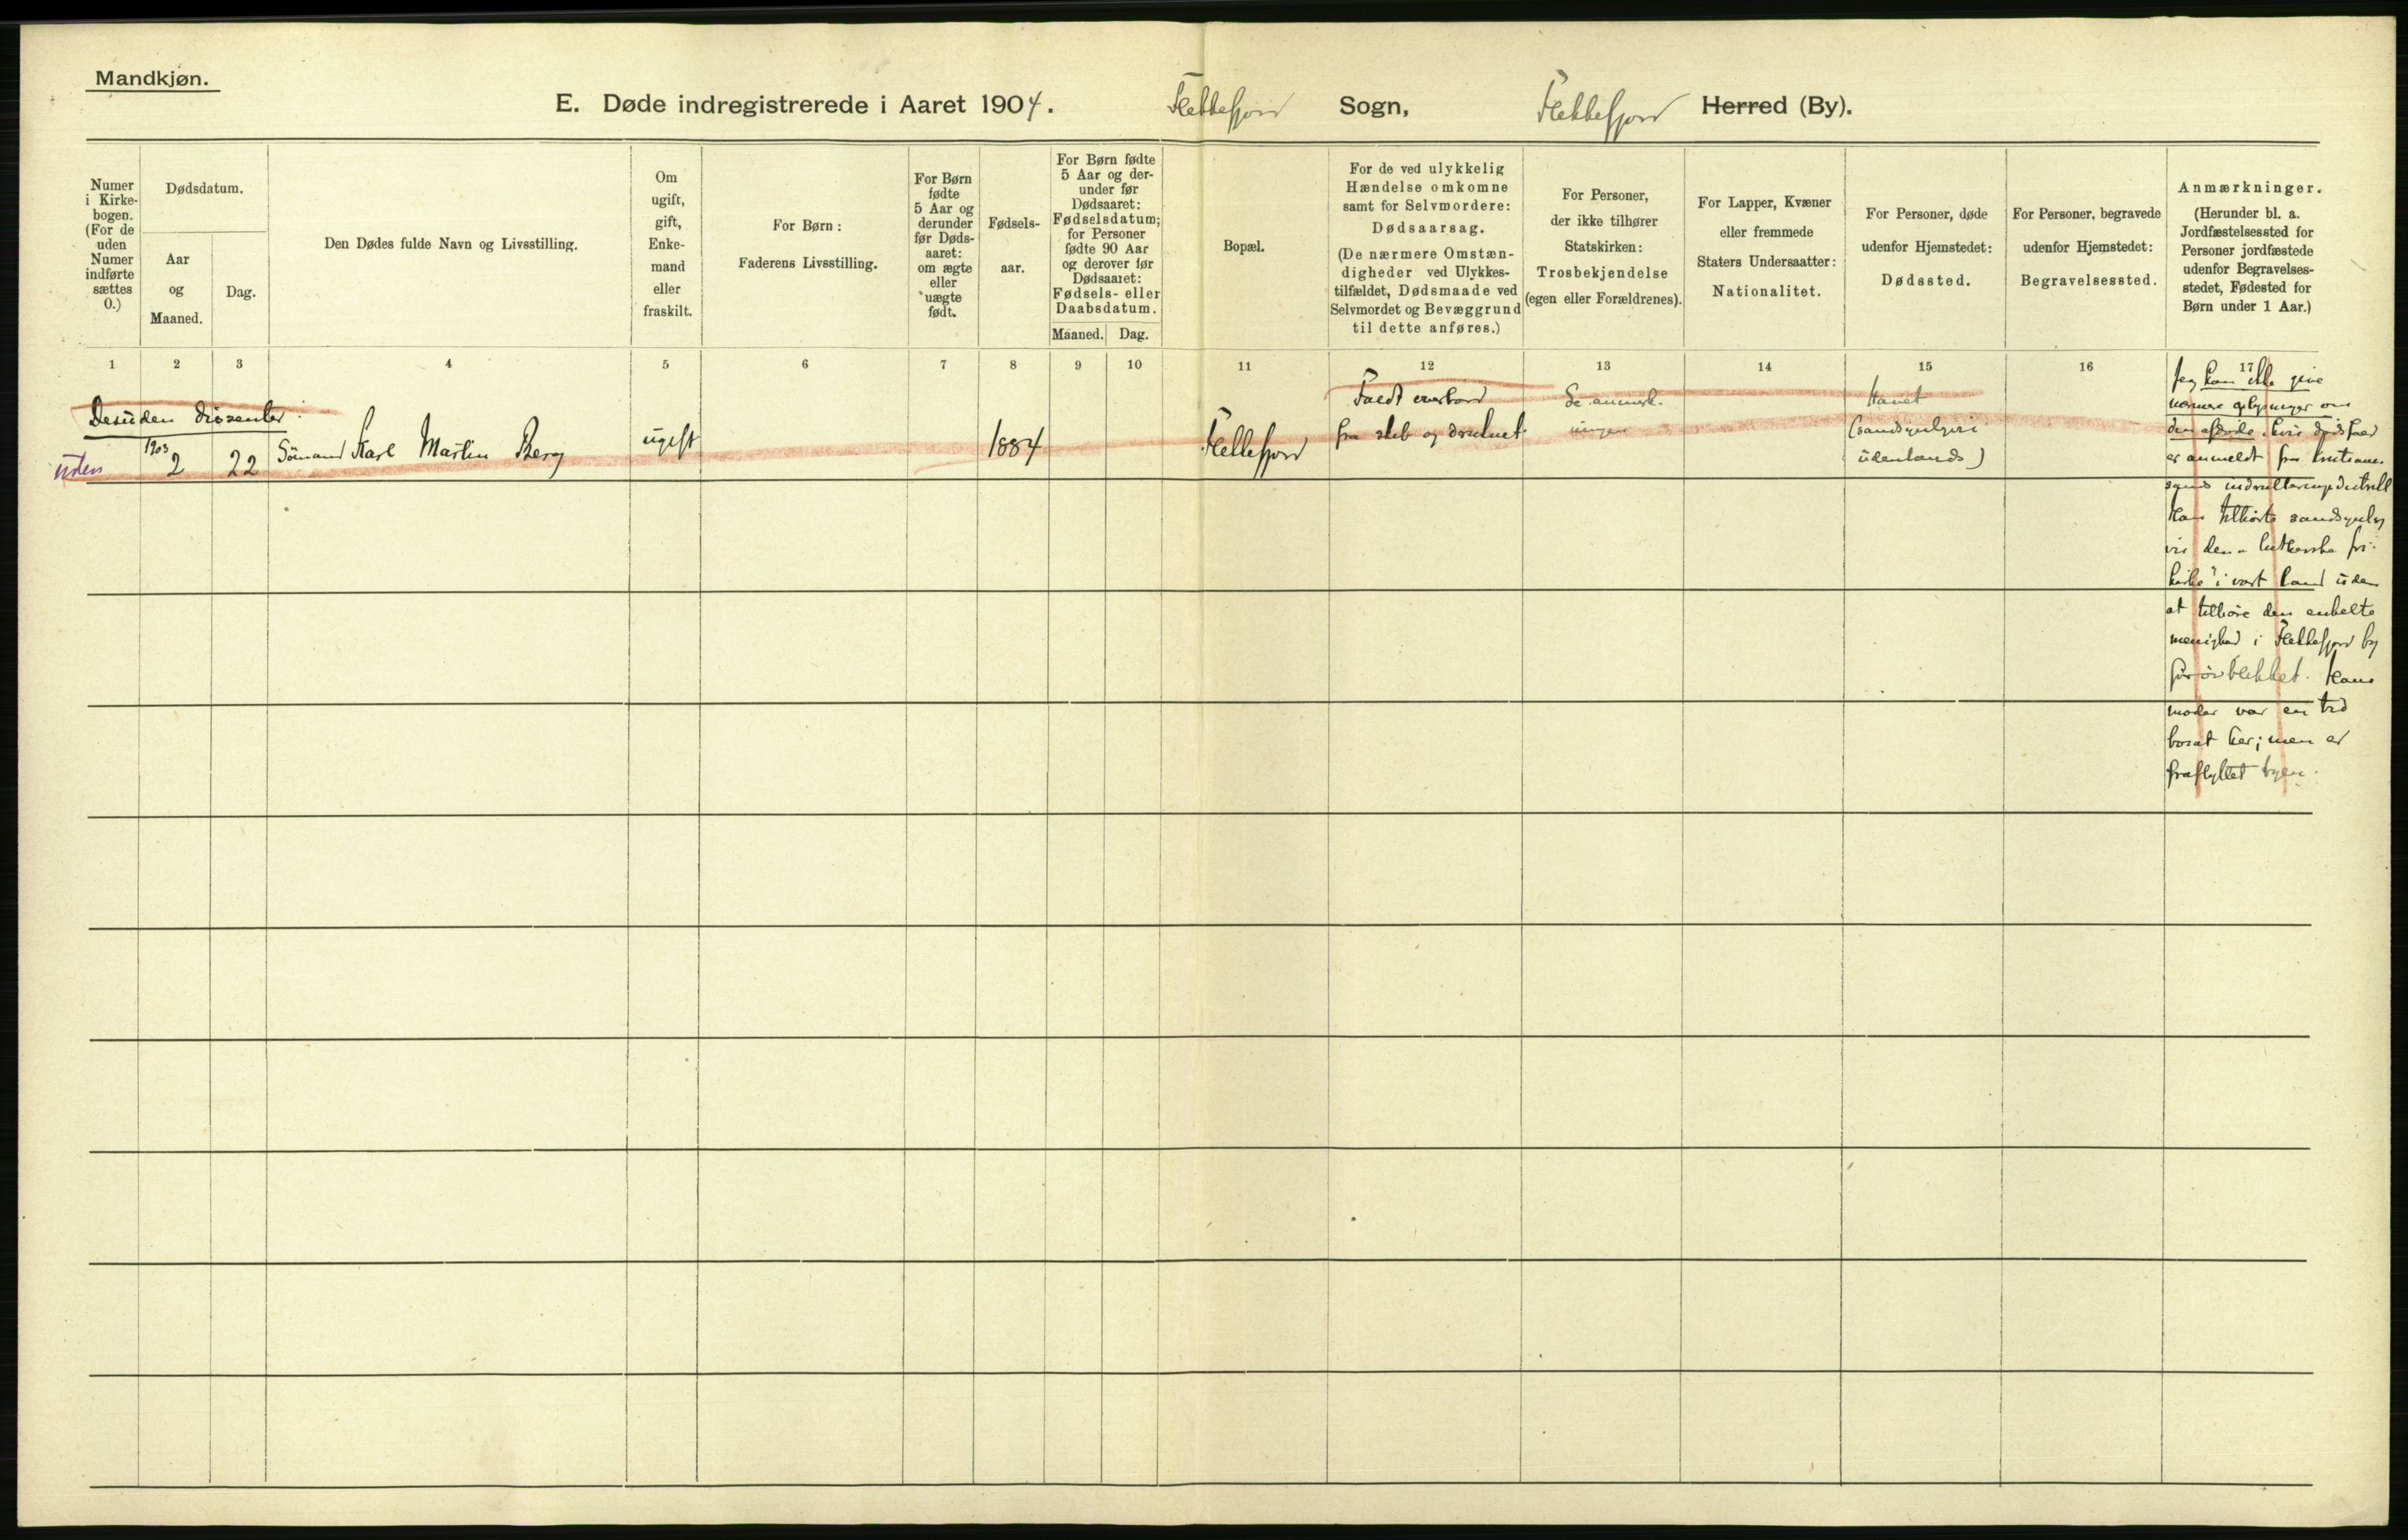 Mandkjøn.
E. Døde indregistrerede i Aaret 1904. Flekkefjord Sogn, Flekkefjord Herred (By).
Numer
i Kirke-
bogen.
(For de
uden
Numer
indførte
sættes
0.)
Dødsdatum.
Aar
og
Maaned.
Dag.
Den Dødes fulde Navn og Livsstilling.
Om
ugift,
gift,
Enke-
mand
eller
fraskilt.
For Børn:
Faderens Livsstilling.
For Børn
fødte
5 Aar og
derunder
før Døds-
aaret:
om ægte
eller
uægte
født.
Fødsels-
aar.
For Børn fødte
5 Aar og der-
under før
Dødsaaret:
Fødselsdatum;
for Personer
fødte 90 Aar
og derover før
Dødsaaret:
Fødsels- eller
Daabsdatum.
Maaned. Dag.
Bopæl.
For de ved ulykkelig
Hændelse omkomne
samt for Selvmordere:
Dødsaarsag.
(De nærmere Omstæn-
digheder ved Ulykkes-
tilfældet, Dødsmaade ved
Selvmordet og Bevæggrund
til dette anføres.)
For Personer,
der ikke tilhører
Statskirken:
Trosbekjendelse
(egen eller Forældrenes).
For Lapper, Kvæner
eller fremmede
Staters Undersaatter:
Nationalitet.
For Personer, døde
udenfor Hjemstedet:
Dødssted.
For Personer, begravede
udenfor Hjemstedet:
Begravelsessted.
Anmærkninger.
(Herunder bl. a.
Jordfæstelsessted for
Personer jordfæstede
udenfor Begravelses-
stedet, Fødested for
Børn under 1 Aar.)
1 2 3 4 5 6 7 8 9 10 11 12 13 14 15 16 17
Desuden dissenter:
uden
1903
2 22 Sömand Karl Martin Berg ugift 1884 Flekkefjord
Faldt overbord
fra skib og druknet
Se anmerk-
ningen
Havet
(sandsynligvis
udenlands)
Jeg kan ikke give
nærmere oplysninger om
den afdøde, hvis dødsfald
er anmeldt fra Kristians-
sands indrulleringsdistrikt
Han tilhørte sandsynlig
vis den "lutherske fri-
kirke" i vort land uden
at tilhøre den enkelte
menighed i Flekkefjord by
for øieblikket. Hans
moder var en tid
bosat her; men er
fraflyttet byen.